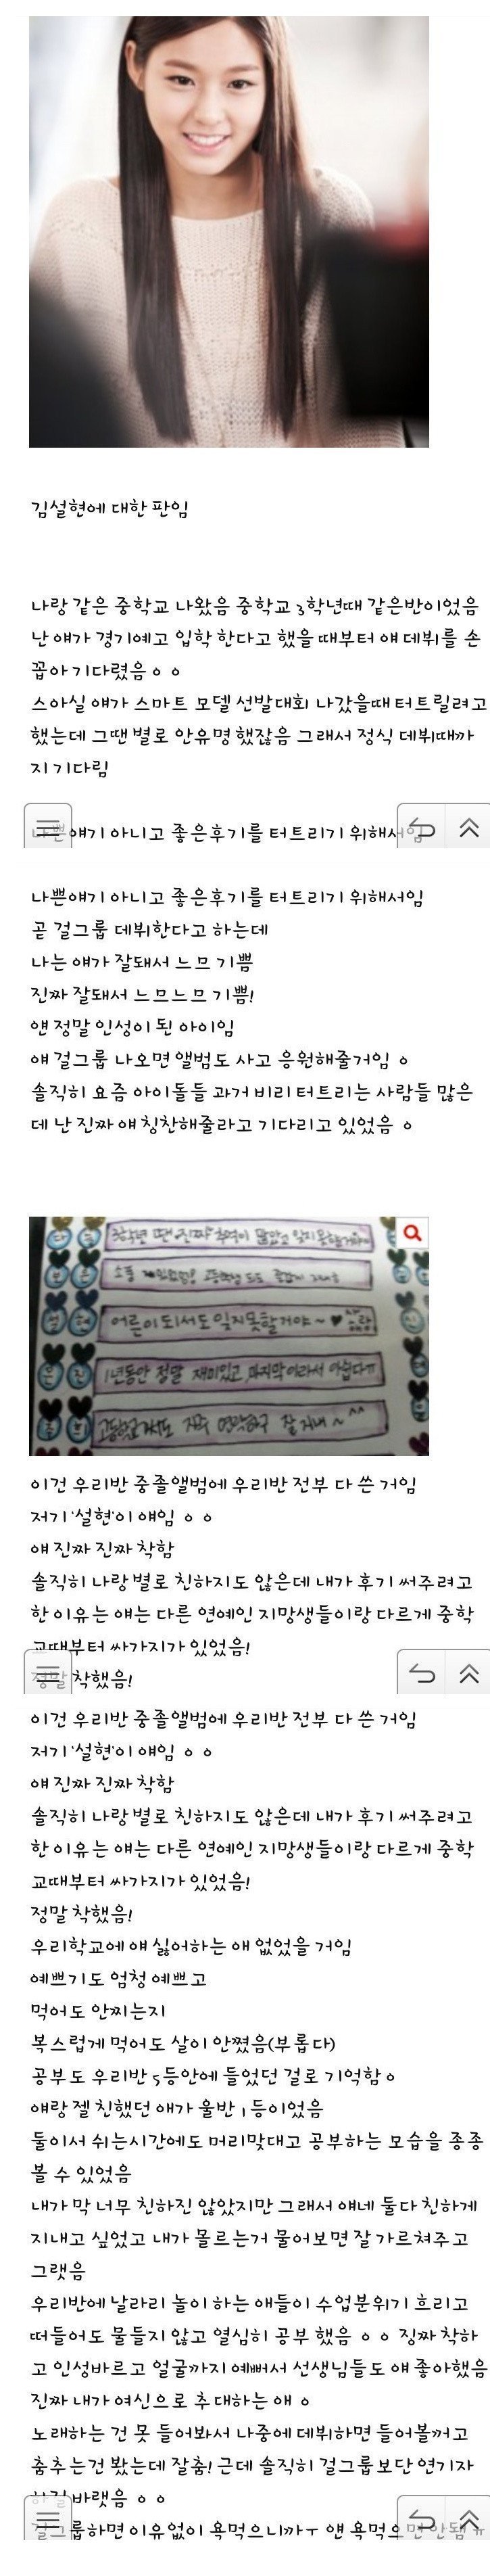 김설현에 대한 판임
나랑 같은 중학교 나왔음 중학교 3학년때 같은반이었음
난 얘가 경기예고 입학 한다고 했을 때부터 얘 데뷔를 손
꼽아 기다렸음ㅇㅇ
스아실 얘가 스마트 모델 선발대회 나갔을때 터트릴려고
했는데 그땐 별로 안유명했잖음 그래서 정식 데뷔때까
지 기다림
나쁜얘기 아니고 좋은후기를 터트리기 위해서임
나쁜얘기 아니고 좋은후기를 터트리기 위해서임
곧 걸그룹 데뷔한다고 하는데
나는 얘가 잘돼서 느므 기쁨
진짜 잘돼서 느므느므 기쁨!
얜 정말 인성이 된 아이임
얘 걸그룹 나오면 앨범도 사고 응원해줄거임 ㅇ
솔직히 요즘 아이돌들 과거 비리 터트리는 사람들 많은
데 난 진짜 얘 칭찬해줄라고 기다리고 있었음 ㅇ
3학년 땐 진짜 추억이 많았고 잊지못할거야
어른이 되서도 잊지못할거야~♥ 사랑
1년동안 정말 재미있고 마지막이라서 아쉽다ㅠ
고등학교가서도 자주 연락하구 잘지내~^^
이건 우리반 중졸앨범에 우리반 전부 다 쓴 거임
저기 '설현'이 얘임 ㅇㅇ
얘 진짜 진짜 착함
솔직히 나랑 별로 친하지도 않은데 내가 후기 써주려고
한 이유는 얘는 다른 연예인 지망생들이랑 다르게 중학
교때부터 싸가지가 있었음!
정말 착했음!
이건 우리반 중졸앨범에 우리반 전부 다 쓴 거임
저기 '설현'이 얘임 ㅇㅇ
얘 진짜 진짜 착함
솔직히 나랑 별로 친하지도 않은데 내가 후기 써주려고
한 이유는 얘는 다른 연예인 지망생들이랑 다르게 중학
교때부터 싸가지가 있었음!
정말 착했음!
우리학교에 얘 싫어하는 애 없었을 거임
예쁘기도 엄청 예쁘고
먹어도 안찌는지
복스럽게 먹어도 살이 안쪘음(부롭다)
공부도 우리반 5등안에 들었던 걸로 기억함ㅇ
얘랑 젤 친했던 애가 울반 1등이었음
둘이서 쉬는시간에도 머리맞대고 공부하는 모습을 종종
볼 수 있었음
내가 막 너무 친하진 않았지만 그래서 얘네 둘다 친하게
지내고 싶었고 내가 몰르는거 물어보면 잘 가르쳐주고
그랫음
우리반에 날라리 놀이 하는 애들이 수업분위기 흐리고
떠들어도 물들지 않고 열심히 공부 했음 ㅇㅇ 징짜 착하
고 인성바르고 얼굴까지 예뻐서 선생님들도 얘 좋아했음
진짜 내가 여신으로 추대하는 애ㅇ
노래하는 건 못 들어봐서 나중에 데뷔하면 들어볼꺼고
춤추는건 봤는데 잘춤! 근데 솔직히 걸그룹보단 연기자
하길 바랫음 ㅇㅇ
걸그룹하면 이유없이 욕먹으니까ㅜ 얜 욕먹으면 안됨ㅠ